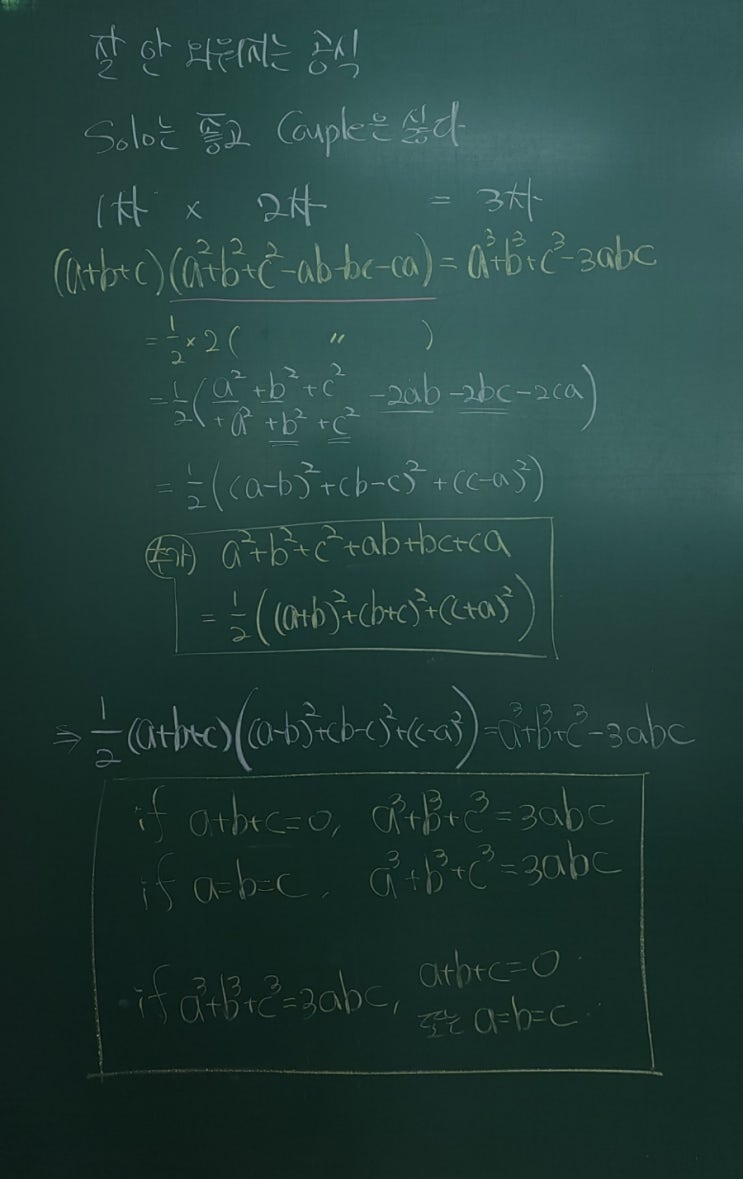 잘 안 외워지는 공식
Solo는 좋고 Couple은 싫다
1차 × 2차 = 3차
(a+b+c)(a²+b²+c²-ab-bc-ca)=a³+b³+c³-3abc
=½×2( 〃 )
=½(a²+b²+c² -2ab-2bc-2ca)
+a²+b²+c²
=½((a-b)²+(b-c)²+(c-a)²)
추가) a²+b²+c²+ab+bc+ca
=½((a+b)²+(b+c)²+(c+a)²)
⇒ ½(a+b+c)((a-b)²+(b-c)²+(c-a)²)=a³+b³+c³-3abc
if a+b+c=0, a³+b³+c³=3abc
if a=b=c, a³+b³+c³=3abc
if a³+b³+c³=3abc, a+b+c=0
또는 a=b=c